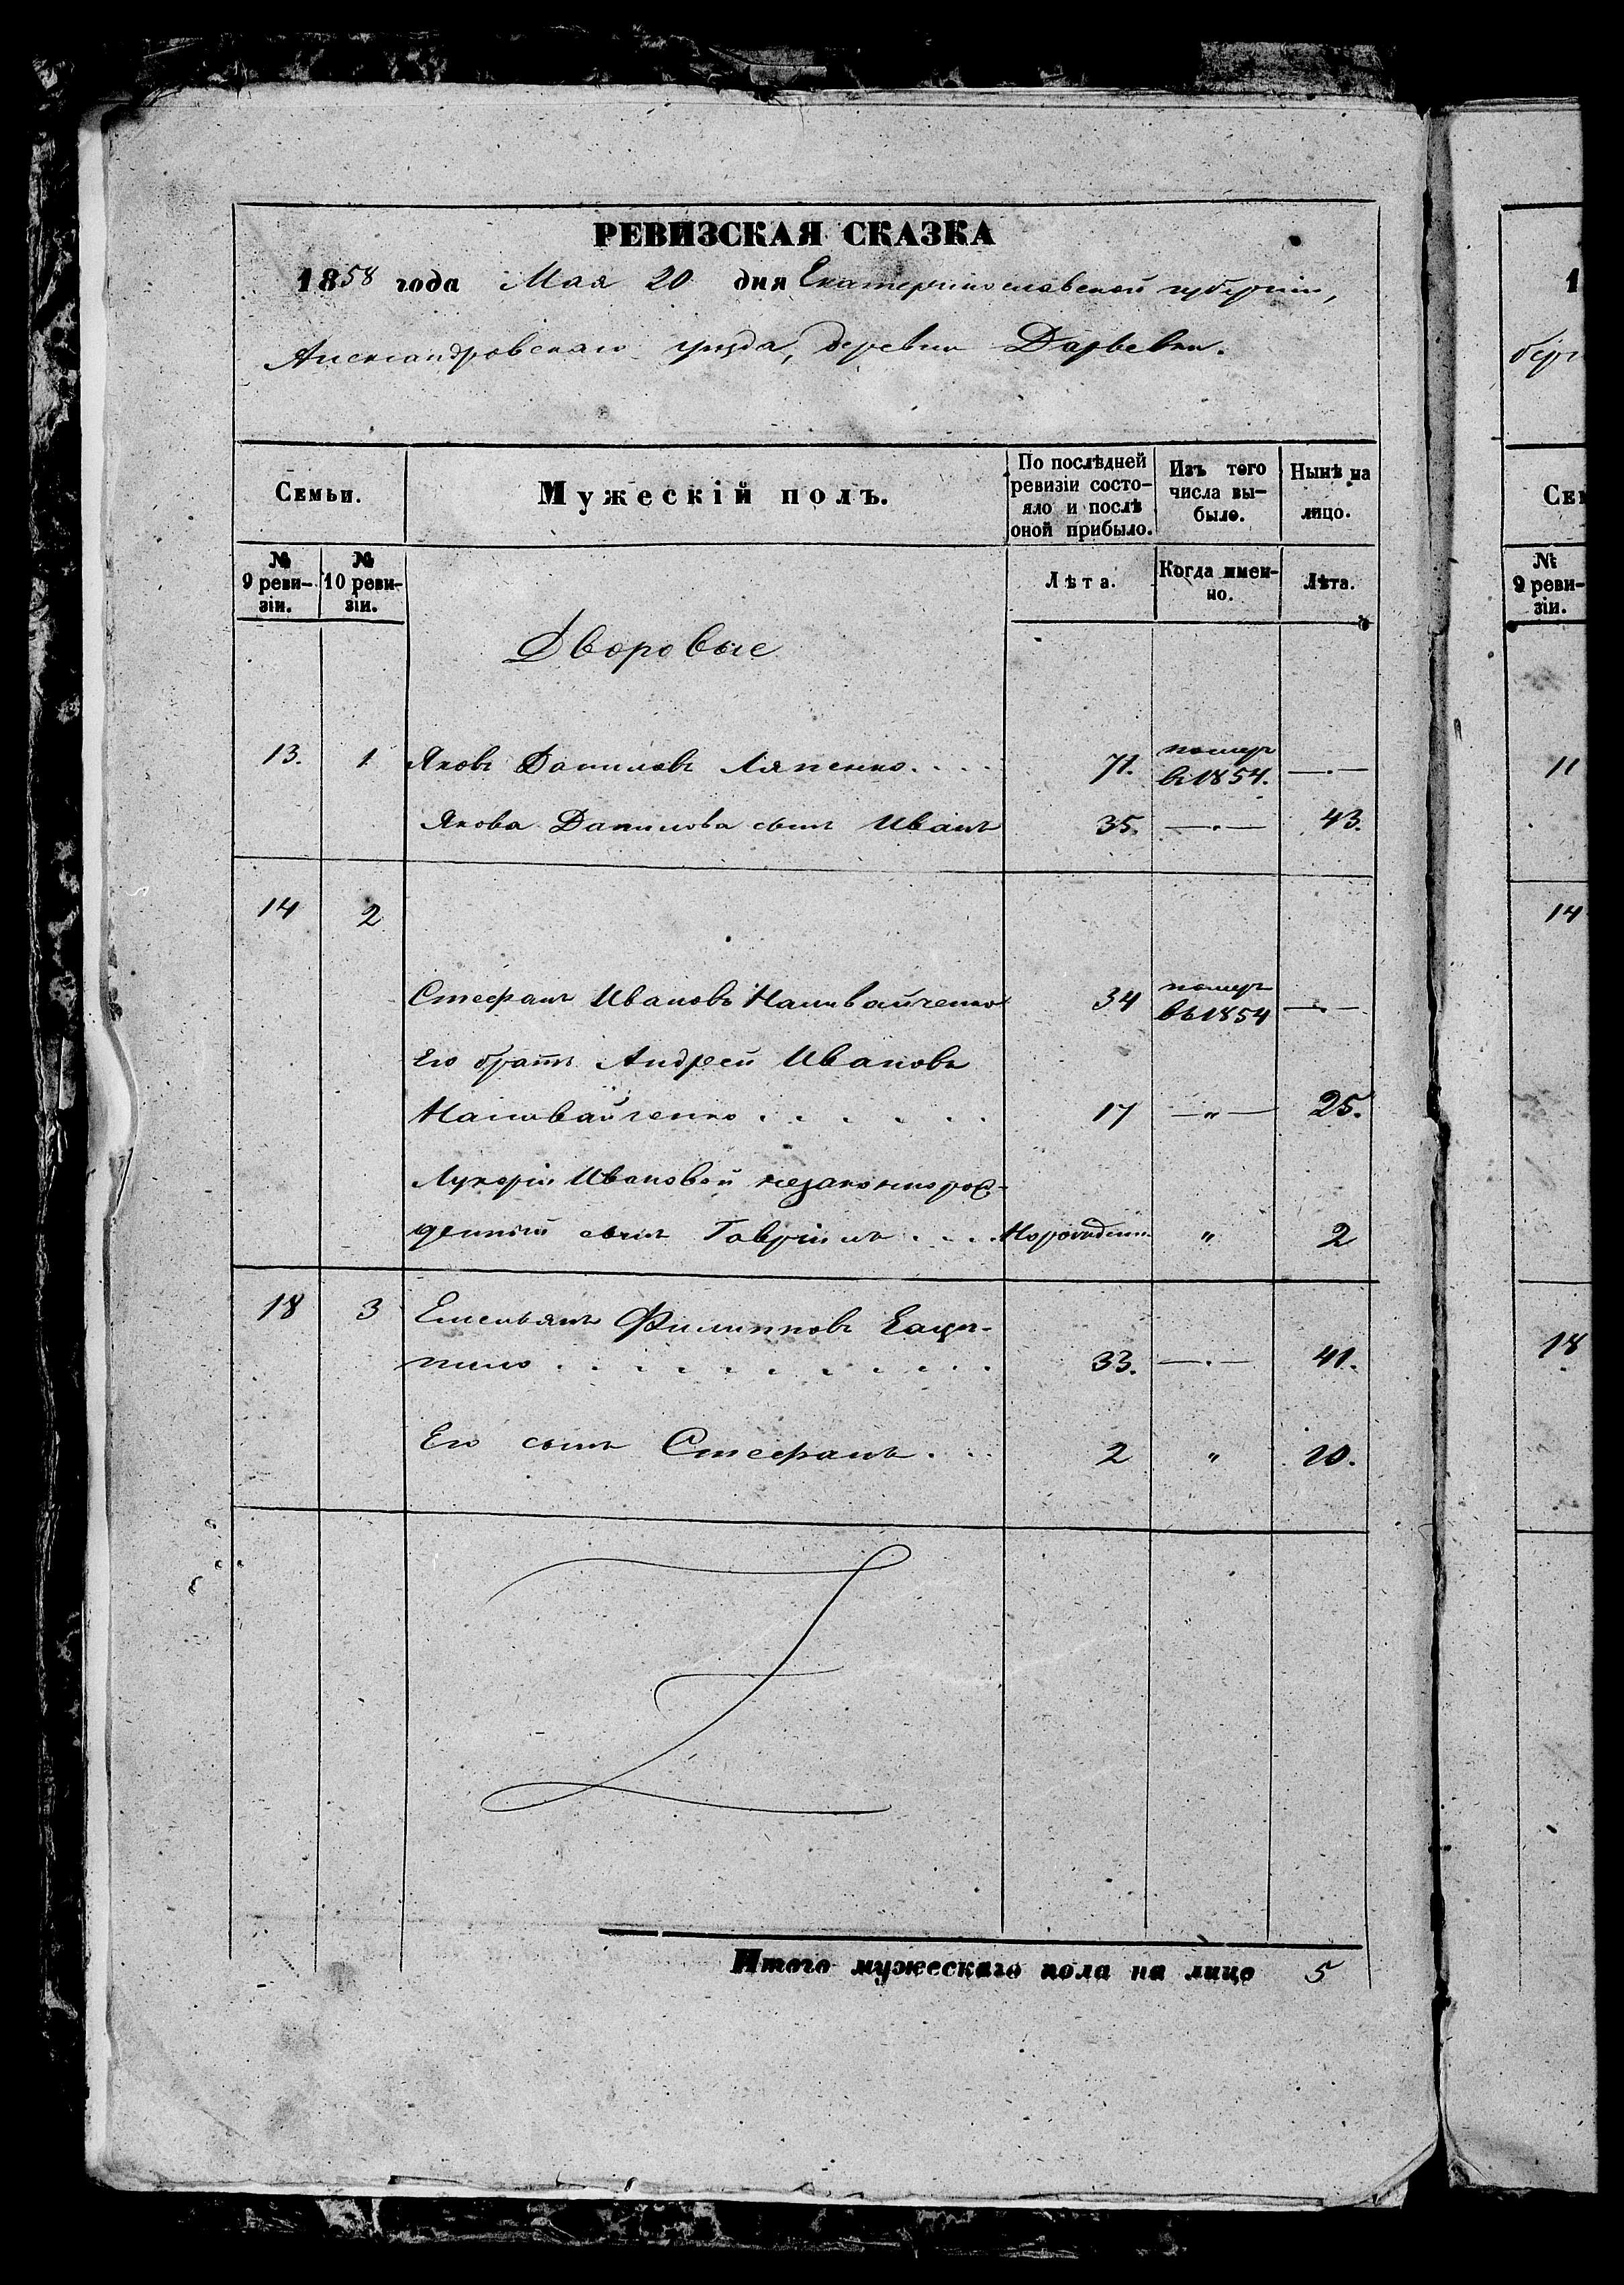 РЕВИЗСКАЯ СКАЗКА
1858 года Мая 20 дня Екатеринославской губерніи,
Александровскаго уезда, деревни Дарьевки.
Семьи.
Мужескій полъ.
По послѣдней ревизіи состо-
яло и послѣ
оной прибыло.
Изъ того
числа вы-
было.
Нынѣ на
лицо.
№
9 реви-
зіи.
№
10 реви-
зіи.
Лѣта.
Когда имен-
но.
Лѣта.
Дворовые
13. 1 Яковъ Даниловъ Ляпенко.... 71. помер въ 1854. —.—
Якова Данилова сынъ Иванъ 35. —.— 43.
14 2
Стефанъ Ивановъ Наливайченко 34 помер въ 1854 —.—
Его братъ Андрей Ивановъ
Наливайченко...... 17 —„— 25.
Лукеріи Ивановой незаконнорож-
денный сынъ Гавріилъ.... Норожденн. „ 2
18 3 Емельянъ Филипповъ
пило.......... 33. —.— 41.
Его сынъ Стефанъ... 2 „ 10.
Итого мужескаго пола на лицо 5
1
бер
Се
№
9 реви-
зіи.
14
18